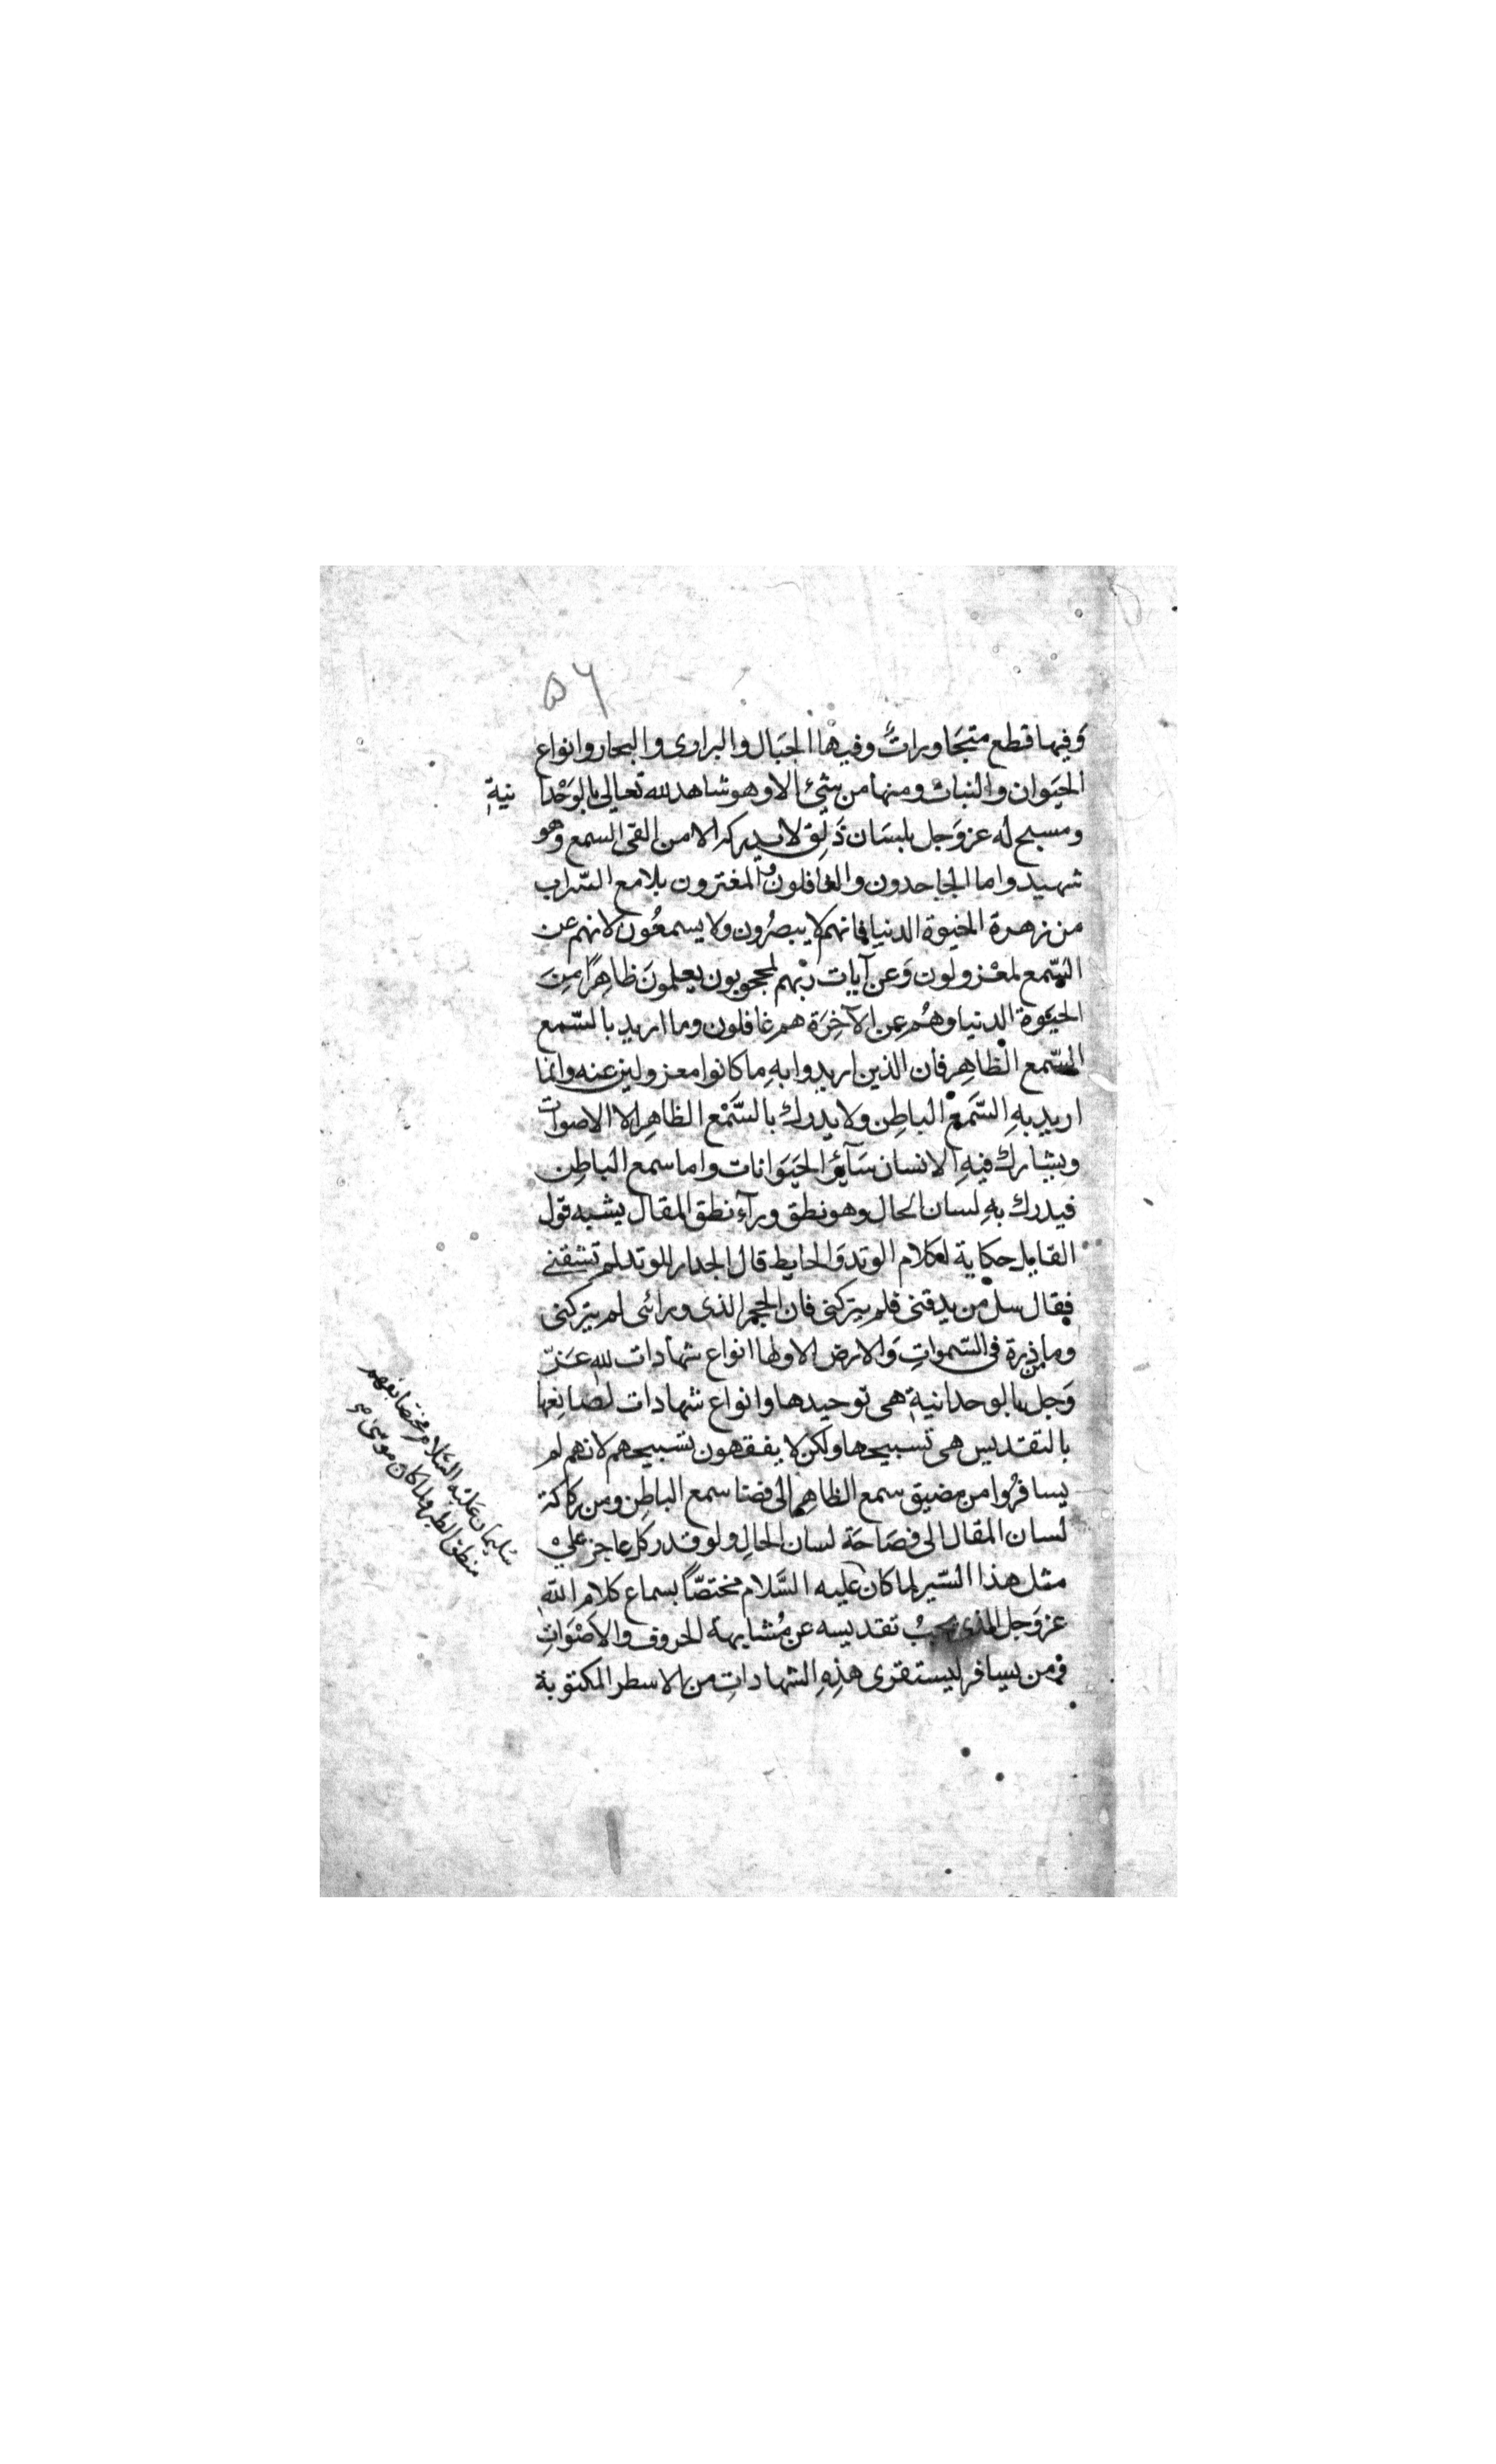 ٥٦
وَفيها قطع متجَاوراتٌ وفيها الجبَال والبرارى والبحار وانواع
الحيَوان والنبات وما من شئ الا وهو شاهد لله تعالى بالوَحْدا نيةِ
ومسبح له عز وَجل بلسَان ذَلِق لا يدركه الا من القى السمع وهو
شهيد واما الجاحدون والغافلون والمغترون بلامع السّراب
من زهرة الحيوة الدنيا فانهم لا يبصرُون ولا يسمعُون لانهم عن
السّمع لمعْزولون وَعن آيات ربّهم لمحجوبون يعلمونَ ظاهِرًا مِنَ
الحيَوة الدنيا وهُم عِن الآخِرَة هم غافلون وما اريد بالسّمع
السّمع الظاهِر فان الذين اريدوا بهِ ما كانوا معزولين عنه وانما
اريد بهِ السَّمعْ الباطِن ولا يدرك بالسَّمْع الظاهِر الا الاصوات
ويشارك فيهِ الانسان سَآئِر الحيَوَانات واما سمع الباطِن
فيدرك بهِ لسان الحال وهو نطق ورآء نطق المقال يشبه قول
القايل حكاية لكلام الوتد وَالحايط قال الجدار للوتد لم تشقنى
فقال سل من يدقنى فلم يتركنى فان الحجر الذى ورائى لم يتركنى
وما من ذرة فى السّمواتِ وَالارض الا ولها انواع شهادات لله عَزّ
وَجل بالوحدانيةِ هى توحيدها وانواع شهادات لصَانِعها
بالتقديس هى تسبيحها ولكن لا يفقهون تسبيحهم لانهم لم
يسافرُوا من مضيق سمع الظاهِر الى فضا سمع الباطِن ومن ركاكة
لسان المقال الى فصَاحَة لسان الحالِ ولو قدر كل عاجز على
مثل هذا السّير لما كان عليه السَّلام مختصّاً بسماع كلام اللّه
عز وَجل الذى يجبُ تقديسه عن مُشابهة الحروف والاصْوَاتِ
فمن يسافر ليستقرى هذِهِ الشهاداتِ من الاسطر المكتوبة
سُليمان عَليْه السَّلام مختصّا بفهم
منطق الطير ولما كان موسى صح